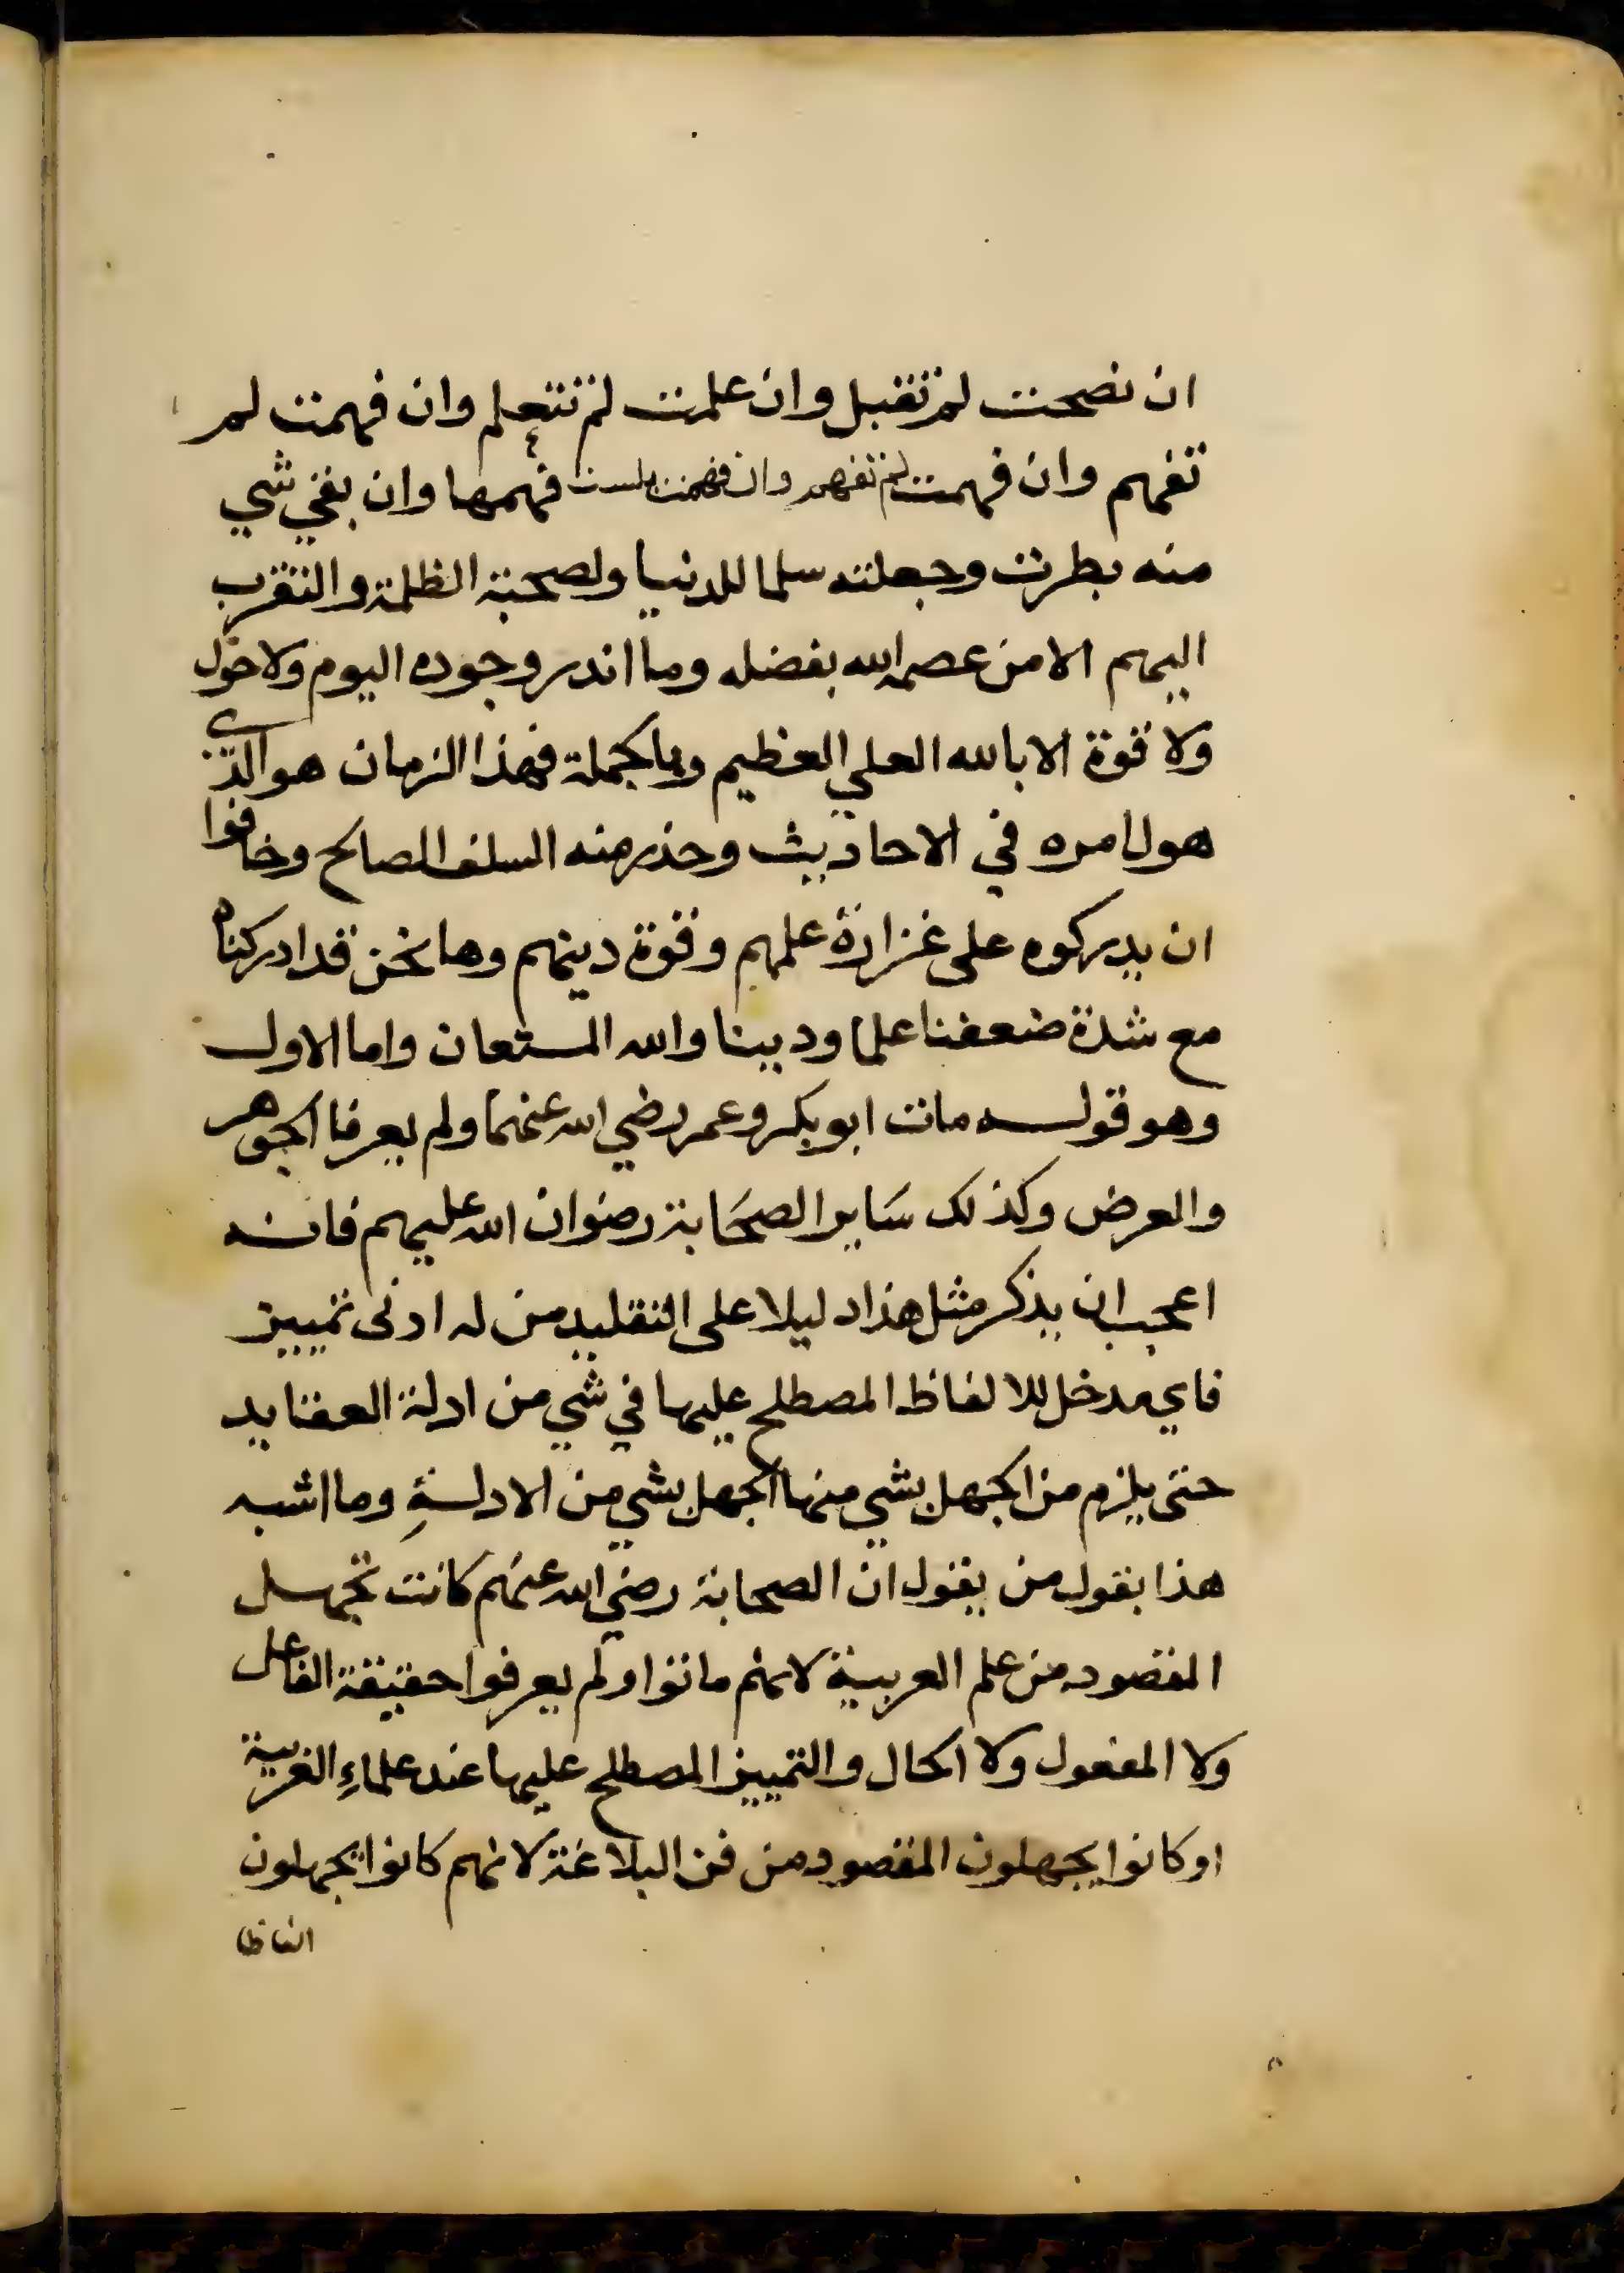 ان نصحت لم تقبل وان علمت لم تتعلم وان فهمت لم
تفهم وان فهمت لم تفهم وان فهمت فهمها وان بقي شي
منه بطرت وجعلته سلما للدنيا ولصحبة الظلمة والتقرب
اليهم الا من عصمه الله بفضله وما اندر وجوده اليوم ولا حول
ولا قوة الا بالله العلي العظيم وبالجملة فهذا الزمان هو الذي
هول امره في الاحاديث وحذر منه السلف الصالح وخافوا
ان يدركوه على غزارة علمهم وقوة دينهم وها نحن قد ادركناه
مع شدة ضعفنا علما ودينا والله المستعان واما الاول
وهو قوله مات ابو بكر وعمر رضي الله عنهما ولم يعرفا الجوهر
والعرض وكذلك سَاير الصحَابة رضوان الله عليهم فانه
اعجب ان يذكر مثل هذا دليلا على التقليد من له ادنى تمييز
فاي مدخل للالفاظ المصطلح عليها في شي من ادلة العقايد
حتى يلزم من الجهل بشي منها الجهل بشي من الادلةِ وما اشبه
هذا بقول من يقول ان الصحابة رضي الله عنهم كانت تجهل
المقصود من علم العربية لانهم ماتوا ولم يعرفوا حقيقة الفاعل
ولا المفعول ولا الحال والتمييز المصطلح عليها عند علماءِ العربية
او كانوا يجهلون المقصود من فن البلاغة لانهم كانوا يجهلون
الفاظا